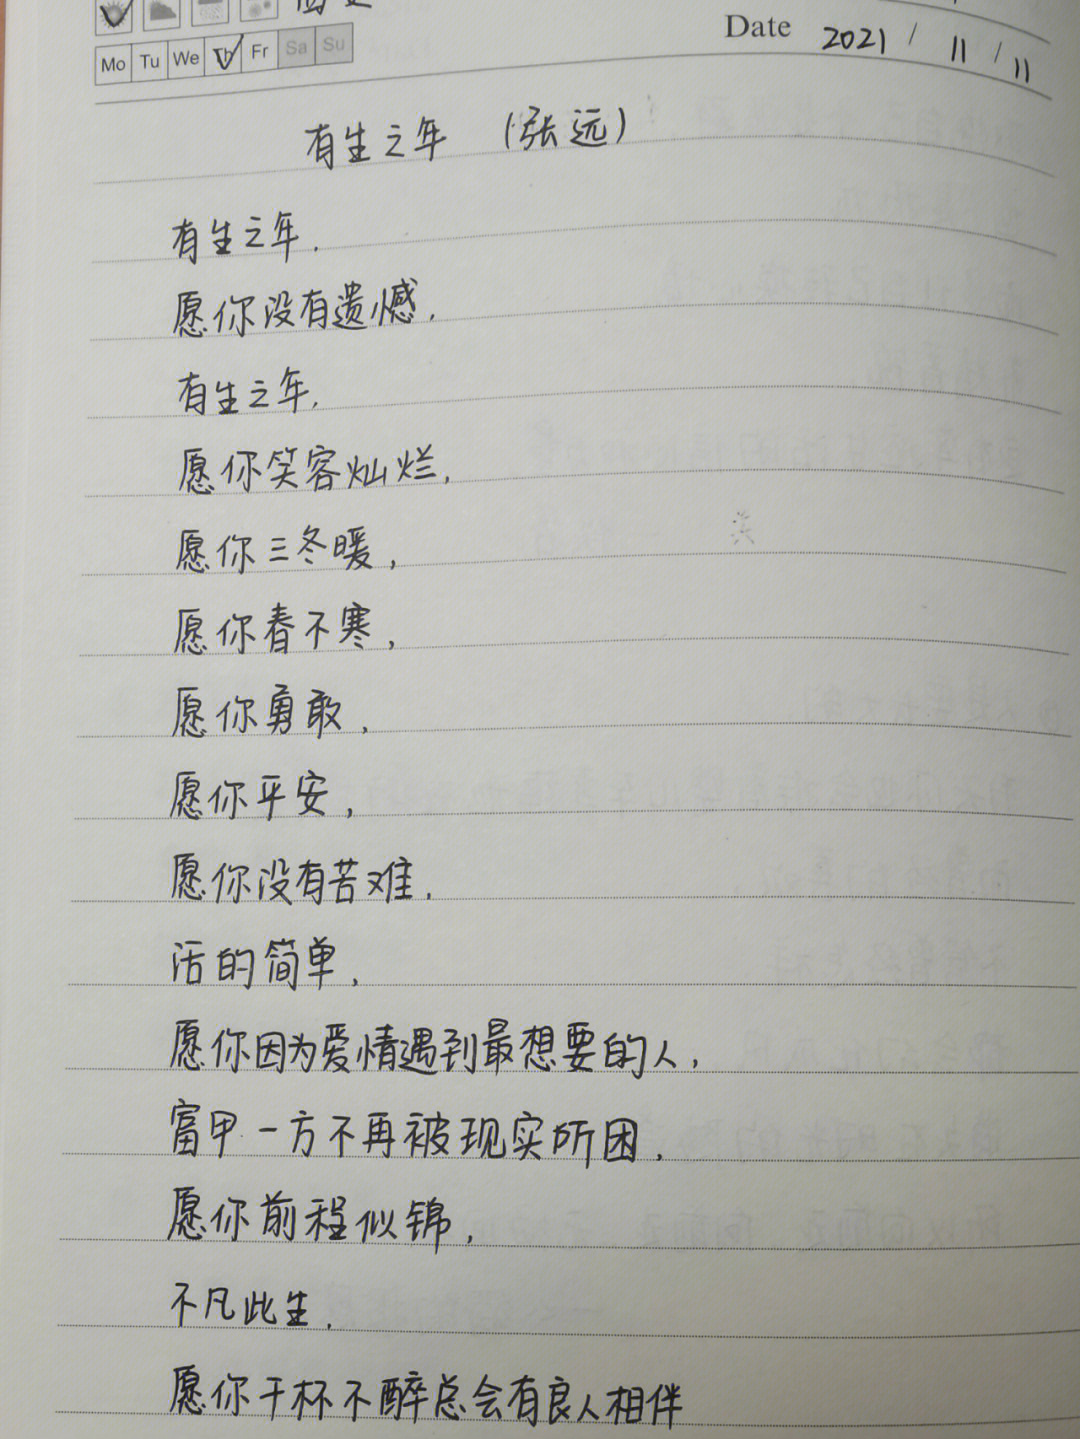 Mo Tu We Th Fr Sa Su
Date 2021/11/11
有生之年 (张远)
有生之年.
愿你没有遗憾.
有生之年.
愿你笑容灿烂.
愿你三冬暖,
愿你春不寒,
愿你勇敢,
愿你平安,
愿你没有苦难.
活的简单.
愿你因为爱情遇到最想要的人,
富甲一方不再被现实所困.
愿你前程似锦.
不凡此生.
愿你千杯不醉总会有良人相伴